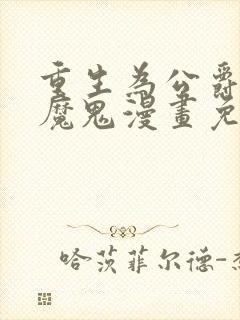 重生為公爵
魔鬼漫畫免
哈茨菲尔德-杰